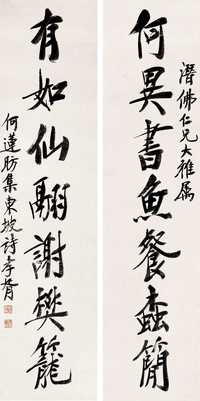 何異書魚餐蠹簡
潛佛仁兄大雅屬
有如仙翮謝樊籠
何蓮舫集東坡詩孝胥